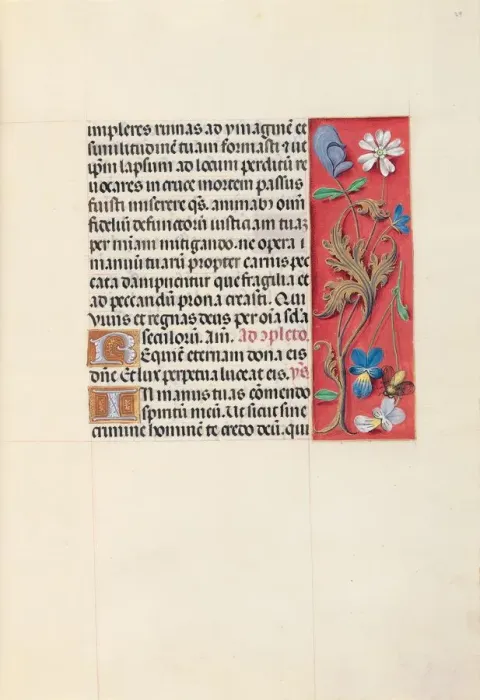 impleres ruinas ad ymaginē et
similitudinē tuam formasti ⁊ ut
ip̄m lapsum ad locum perditū re
uocares in cruce mortem passus
fuisti miserere qs. animab oīm
fideliū defunctorū iusticiam tuaʒ
per miām mitigando. ne opera
manuū tuarū propter carnis pec
cata dampnentur que fragilia et
ad peccandū prona creasti. Qui
viuis et regnas deus per oīa scl̄a
seculorū. Am. Ad ɔpleto.
REquiē eternam dona eis
dn̄e Et lux perpetua luceat eis. ps̄.
IN manus tuas cōmendo
spiritū meū. Ut sicut sine
crimine hominē te credo deū. qui